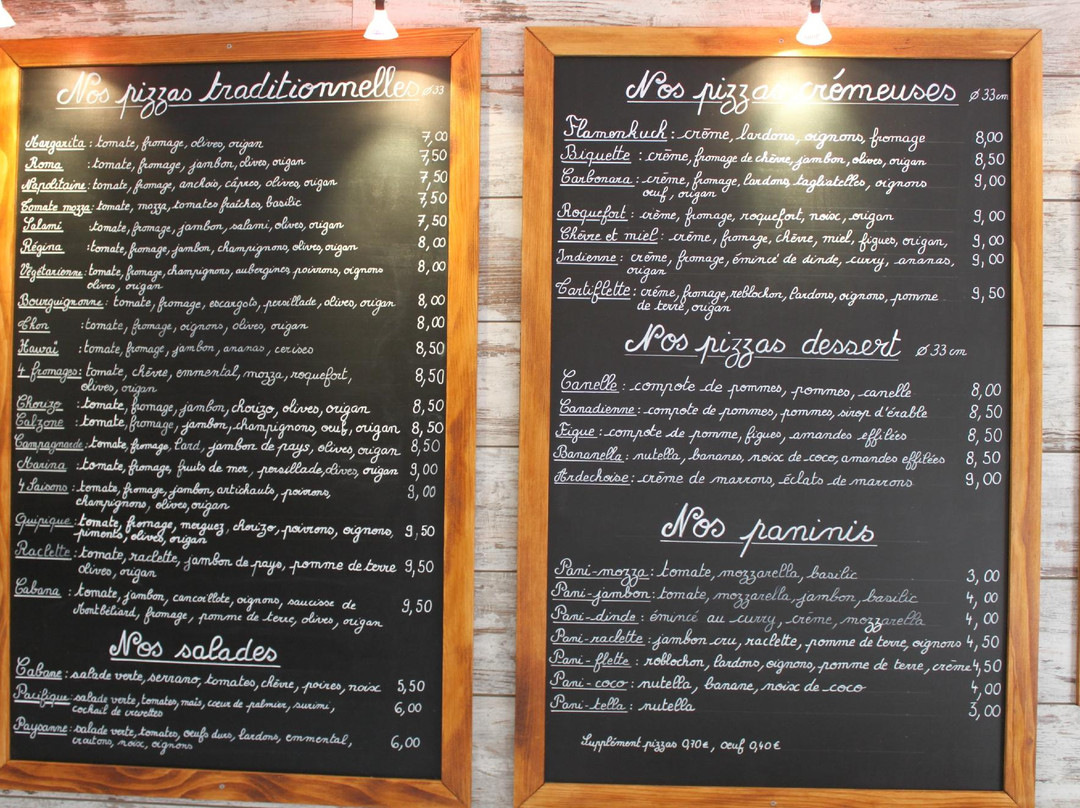 Nos pizzas traditionnelles ø33
Margarita : tomate, fromage, olives, origan 7,00
Roma : tomate, fromage, jambon, olives, origan 7,50
Napolitaine : tomate, fromage, anchois, câpres, olives, origan 7,50
Tomate mozza : tomate, mozza, tomates fraîches, basilic 7,50
Salami : tomate, fromage, jambon, salami, olives, origan 7,50
Régina : tomate, fromage, jambon, champignons, olives, origan 8,00
Végétarienne : tomate, fromage, champignons, aubergines, poivrons, oignons 8,00
olives, origan
Bourguignonne : tomate, fromage, escargots, persillade, olives, origan 8,00
Thon : tomate, fromage, oignons, olives, origan 8,00
Hawaï : tomate, fromage, jambon, ananas, cerises 8,50
4 fromages : tomate, chèvre, emmental, mozza, roquefort, 8,50
olives, origan
Chorizo : tomate, fromage, jambon, chorizo, olives, origan 8,50
Calzone : tomate, fromage, jambon, champignons, œuf, origan 8,50
Campagnarde : tomate, fromage, lard, jambon de pays, olives, origan 8,50
Marina : tomate, fromage, fruits de mer, persillade, olives, origan 9,00
4 Saisons : tomate, fromage, jambon, artichauts, poivrons, 9,00
champignons, olives, origan
Quipique : tomate, fromage, merguez, chorizo, poivrons, oignons, 9,50
piments, olives, origan
Raclette : tomate, raclette, jambon de pays, pomme de terre 9,50
olives, origan
Cabana : tomate, jambon, cancoillote, oignons, saucisse de 9,50
Montbéliard, fromage, pomme de terre, olives, origan
Nos salades
Cabane : salade verte, serrano, tomates, chèvre, poires, noix 5,50
Pacifique : salade verte, tomates, maïs, cœur de palmier, surimi, 6,00
cocktail de crevettes
Paysanne : salade verte, tomates, oeufs durs, lardons, emmental, 6,00
croutons, noix, oignons
Nos pizzas crémeuses ø 33cm
Flamenkuch : crème, lardons, oignons, fromage 8,00
Biquette : crème, fromage de chèvre, jambon, olives, origan 8,50
Carbonara : crème, fromage, lardons, tagliatelles, oignons 9,00
oeuf, origan
Roquefort : crème, fromage, roquefort, noix, origan 9,00
Chèvre et miel : crème, fromage, chèvre, miel, figues, origan, 9,00
Indienne : crème, fromage, émincé de dinde, curry, ananas, 9,00
origan
Tartiflette : crème, fromage, reblochon, lardons, oignons, pomme 9,50
de terre, origan
Nos pizzas dessert ø 33 cm
Canelle : compote de pommes, pommes, canelle 8,00
Canadienne : compote de pommes, pommes, sirop d'érable 8,50
Figue : compote de pomme, figues, amandes effilées 8,50
Bananella : nutella, bananes, noix de coco, amandes effilées 8,50
Ardechoise : crème de marrons, éclats de marrons 9,00
Nos paninis
Pani-mozza : tomate, mozzarella, basilic 3,00
Pani-jambon : tomate, mozzarella, jambon, basilic 4,00
Pani-dinde : émincé au curry, crème, mozzarella 4,00
Pani-raclette : jambon cru, raclette, pomme de terre, oignons 4,50
Pani-flette : roblochon, lardons, oignons, pomme de terre, crème 4,50
Pani-coco : nutella, banane, noix de coco 4,00
Pani-tella : nutella 3,00
Supplément pizzas 0,70€, oeuf 0,40€